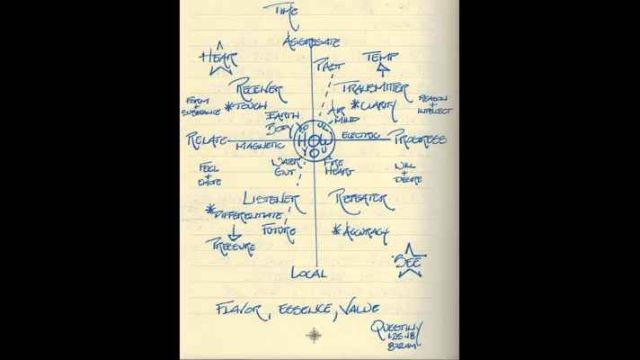 TIME
AGGREGATE
HEAR
PAST
TEMP
RECEIVER
TRANSMITTER
FORM + SUBSTANCE
*TOUCH
*CLARITY
REASON + INTELLECT
EARTH BODY
AIR MIND
RELATE
MAGNETIC
HOW
ELECTRIC
PROGRESS
YOU
FEEL + EMOTE
WATER GUT
FIRE HEART
WILL + DESIRE
LISTENER
REPEATER
*DIFFERENTIATE
FUTURE
*ACCURACY
PRESSURE
SEE
LOCAL
FLAVOR, ESSENCE, VALUE
1·26·18